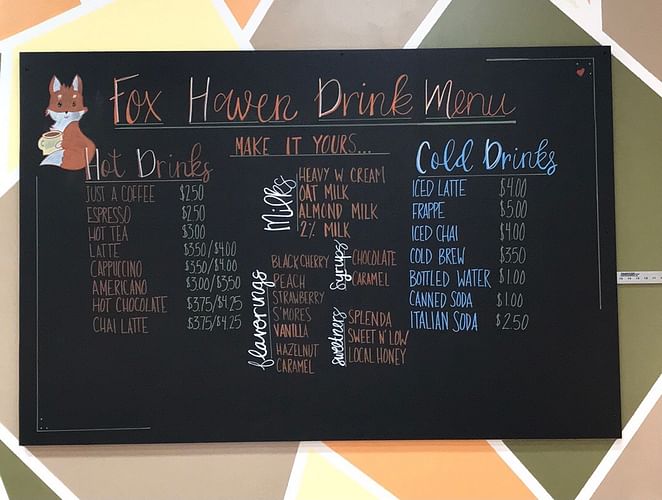 Fox Haven Drink Menu
MAKE IT YOURS...
Hot Drinks
JUST A COFFEE $2.50
ESPRESSO $2.50
HOT TEA $3.00
LATTE $3.50/$4.00
CAPPUCCINO $3.50/$4.00
AMERICANO $3.00/$3.50
HOT CHOCOLATE $3.75/$4.25
CHAI LATTE $3.75/$4.25
Milks
HEAVY W CREAM
OAT MILK
ALMOND MILK
2% MILK
flavorings
BLACK CHERRY
PEACH
STRAWBERRY
S'MORES
VANILLA
HAZELNUT
CARAMEL
Syrups
CHOCOLATE
CARAMEL
sweetners
SPLENDA
SWEET N' LOW
LOCAL HONEY
Cold Drinks
ICED LATTE $4.00
FRAPPE $5.00
ICED CHAI $4.00
COLD BREW $3.50
BOTTLED WATER $1.00
CANNED SODA $1.00
ITALIAN SODA $2.50